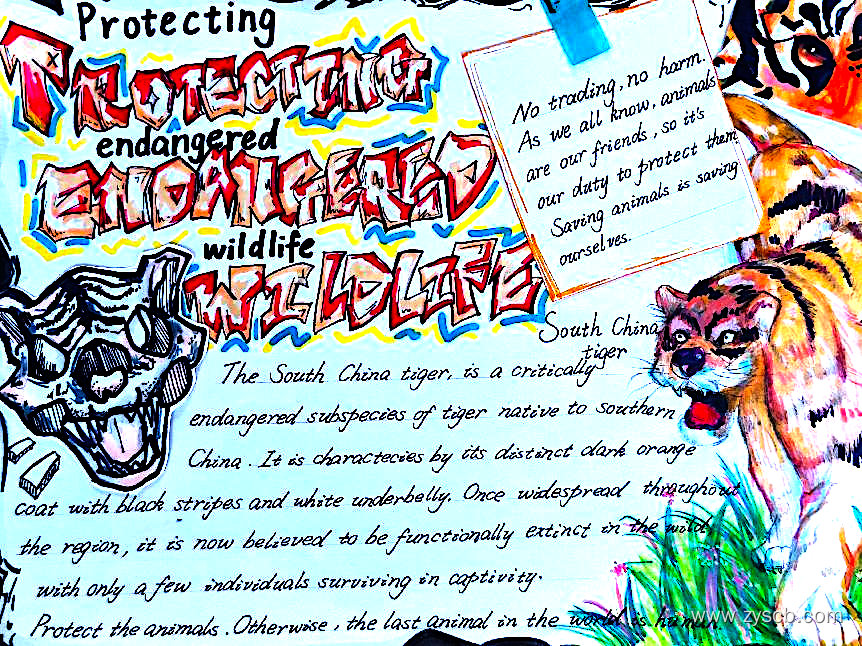 Protecting
PROTECTING
endangered
ENDANGERED
wildlife
WILDLIFE
No trading, no harm.
As we all know, animals
are our friends, so it's
our duty to protect them
Saving animals is saving
ourselves.
South China
tiger
The South China tiger, is a critically
endangered subspecies of tiger native to southern
China. It is charactecies by its distinct dark orange
coat with black stripes and white underbelly. Once widespread throughout
the region, it is now believed to be functionally extinct in the wild,
with only a few individuals surviving in captivity.
Protect the animals. Otherwise, the last animal in the world is human.
www.zyscb.com